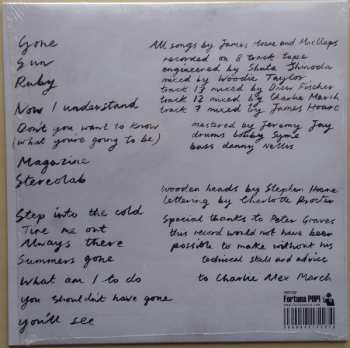 Gone
Sun
Ruby
Now I understand
Don't you want to know
(what you're going to be)
Magazine
Stereolab
Step into the cold
Time me out
Always there
Summers gone
What am I to do
You shouldn't have gone
You'll see
All songs by James Hoare and Max
recorded on 8 track tape
engineered by Shuta Shinoda
mixed by Woodie Taylor
track 13 mixed by Fischer
track 12 mixed by Charlie March
track 7 mixed by James Hoare
mastered by Jeremy Jay
drums bobby Syme
bass danny nellis
wooden heads by Stephen Hoare
lettering by Charlotte Procter
Special thanks to Peter Graves
this record would not have been
possible to make without his
technical skill and advice
to Charlie Alex March
Fortuna POP!